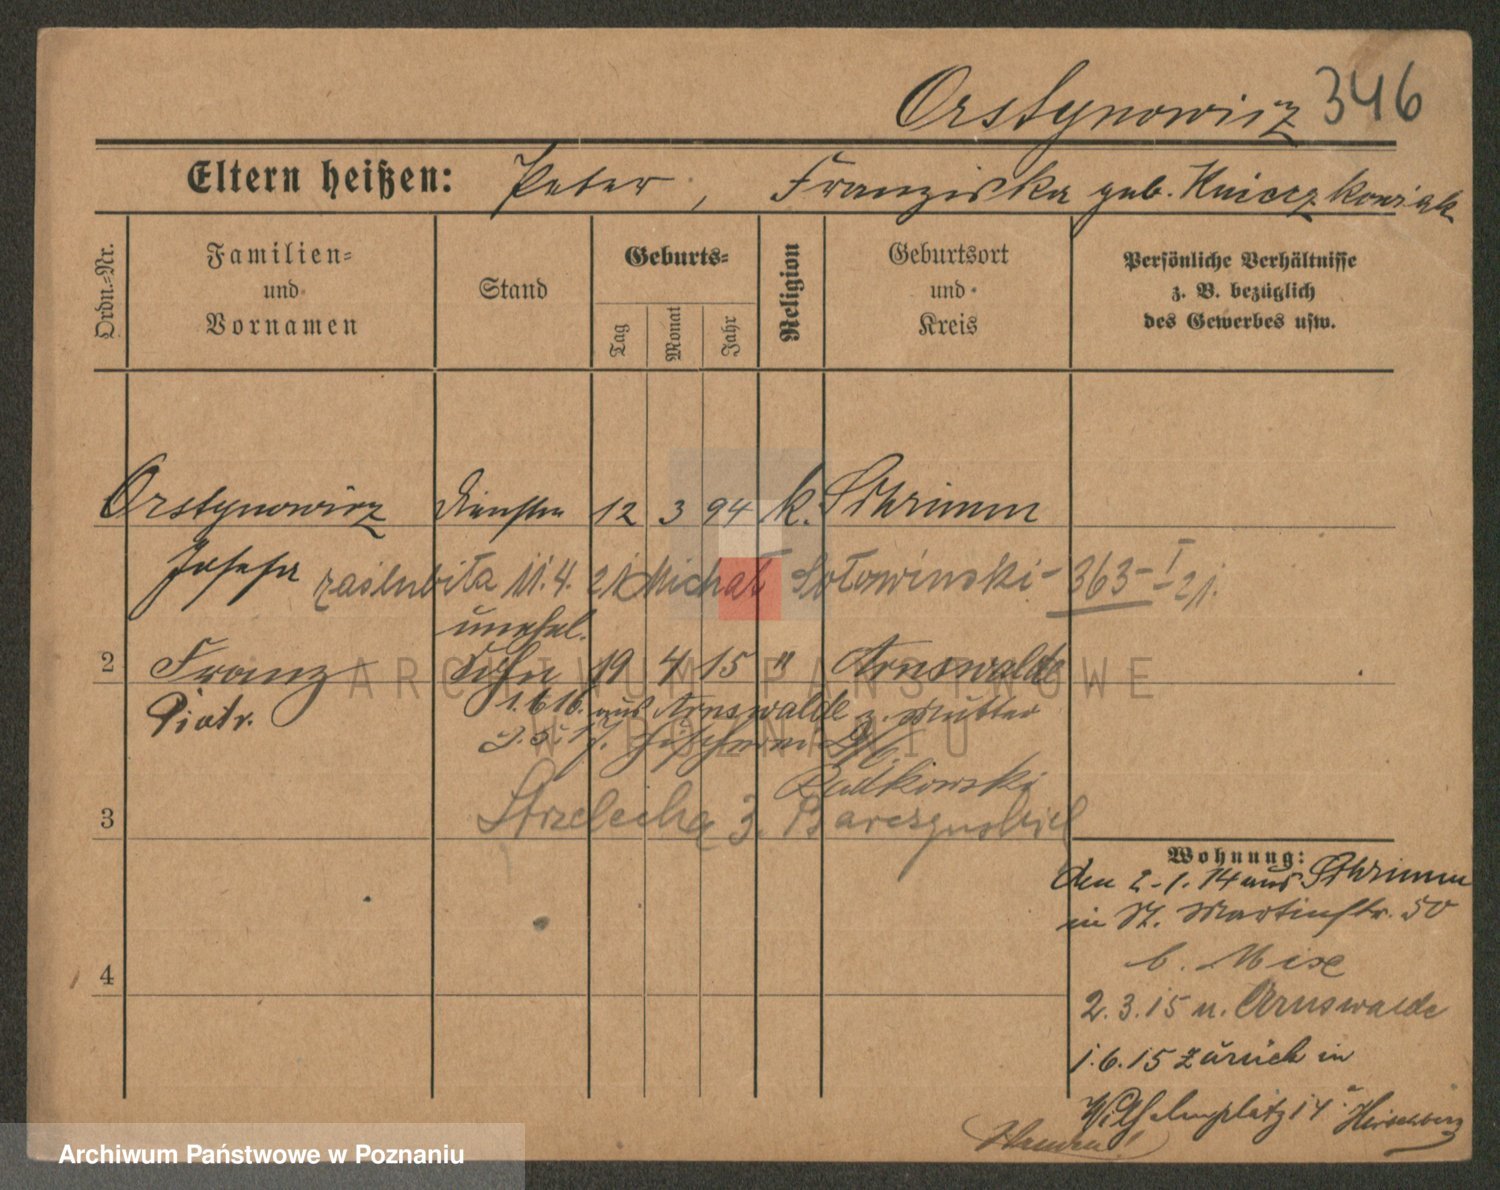 Orstynowicz 346
Eltern heißen: Peter, Franziska geb. Knierzkowiak
Ordn.-Nr.
Familien-
und
Vornamen
Stand
Geburts-
Tag
Monat
Jahr
Religion
Geburtsort
und
Kreis
Persönliche Verhältnisse
z. B. bezüglich
des Gewerbes usw.
Orstynowicz 12 3 94 k. Schrimm
Josefa zaślubiła 11.4.21 Michał Sołowinski - 363 - I - 21.
unehel.
2 Franz Sohn 19 4 15 " Arnswalde
Piotr. 1.6.16. aus Arnswalde z. Mutter
Radkowski
3 Strzelecka 3.
Wohnung:
den 2-1.14 aus Schrimm
in St. Martinstr. 50
b.
4
2.3.15 n. Arnswalde
1.6.15 zurück in
Wilhelmplatz 14
ARCHIWUM PAŃSTWOWE
W POZNANIU
Archiwum Państwowe w Poznaniu